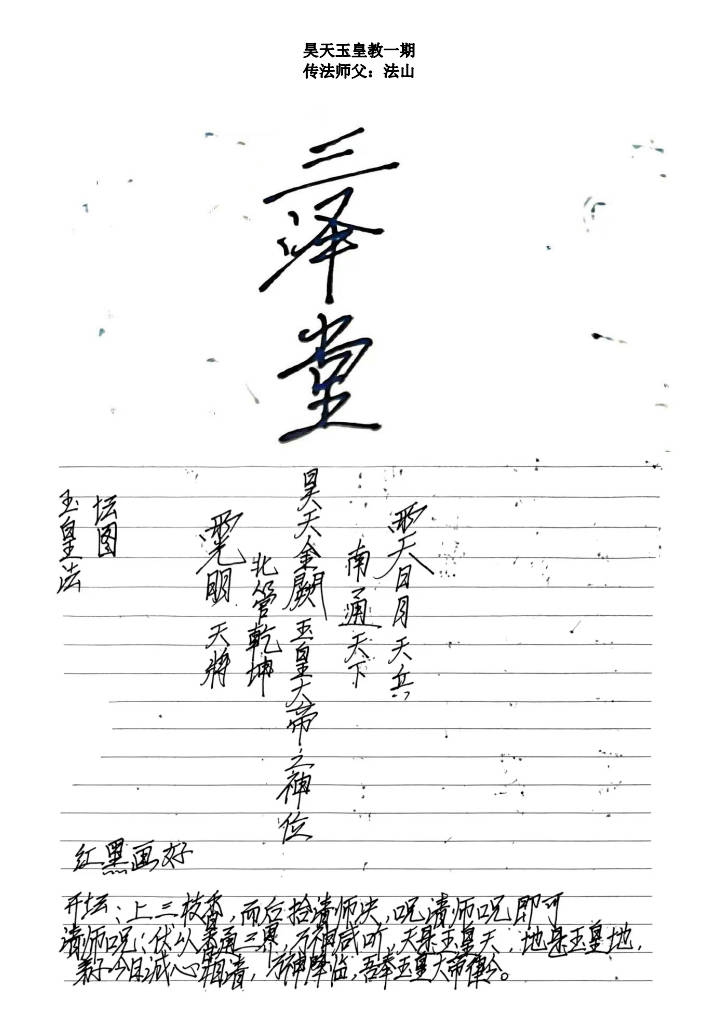 昊天玉皇教一期
传法师父：法山
三泽堂
坛图
玉皇法
天日月天兵
南通天下
昊天金阙玉皇大帝之神位
北管乾坤
光明天将
红黑画好
开坛：上三枝香，而后拾请师决，呪请师呪即可
请师呪：伏以香通三界，万神咸听，天是玉皇天，地是玉皇地，
弟子今日诚心祖请，万神降临，吾奉玉皇大帝律令。